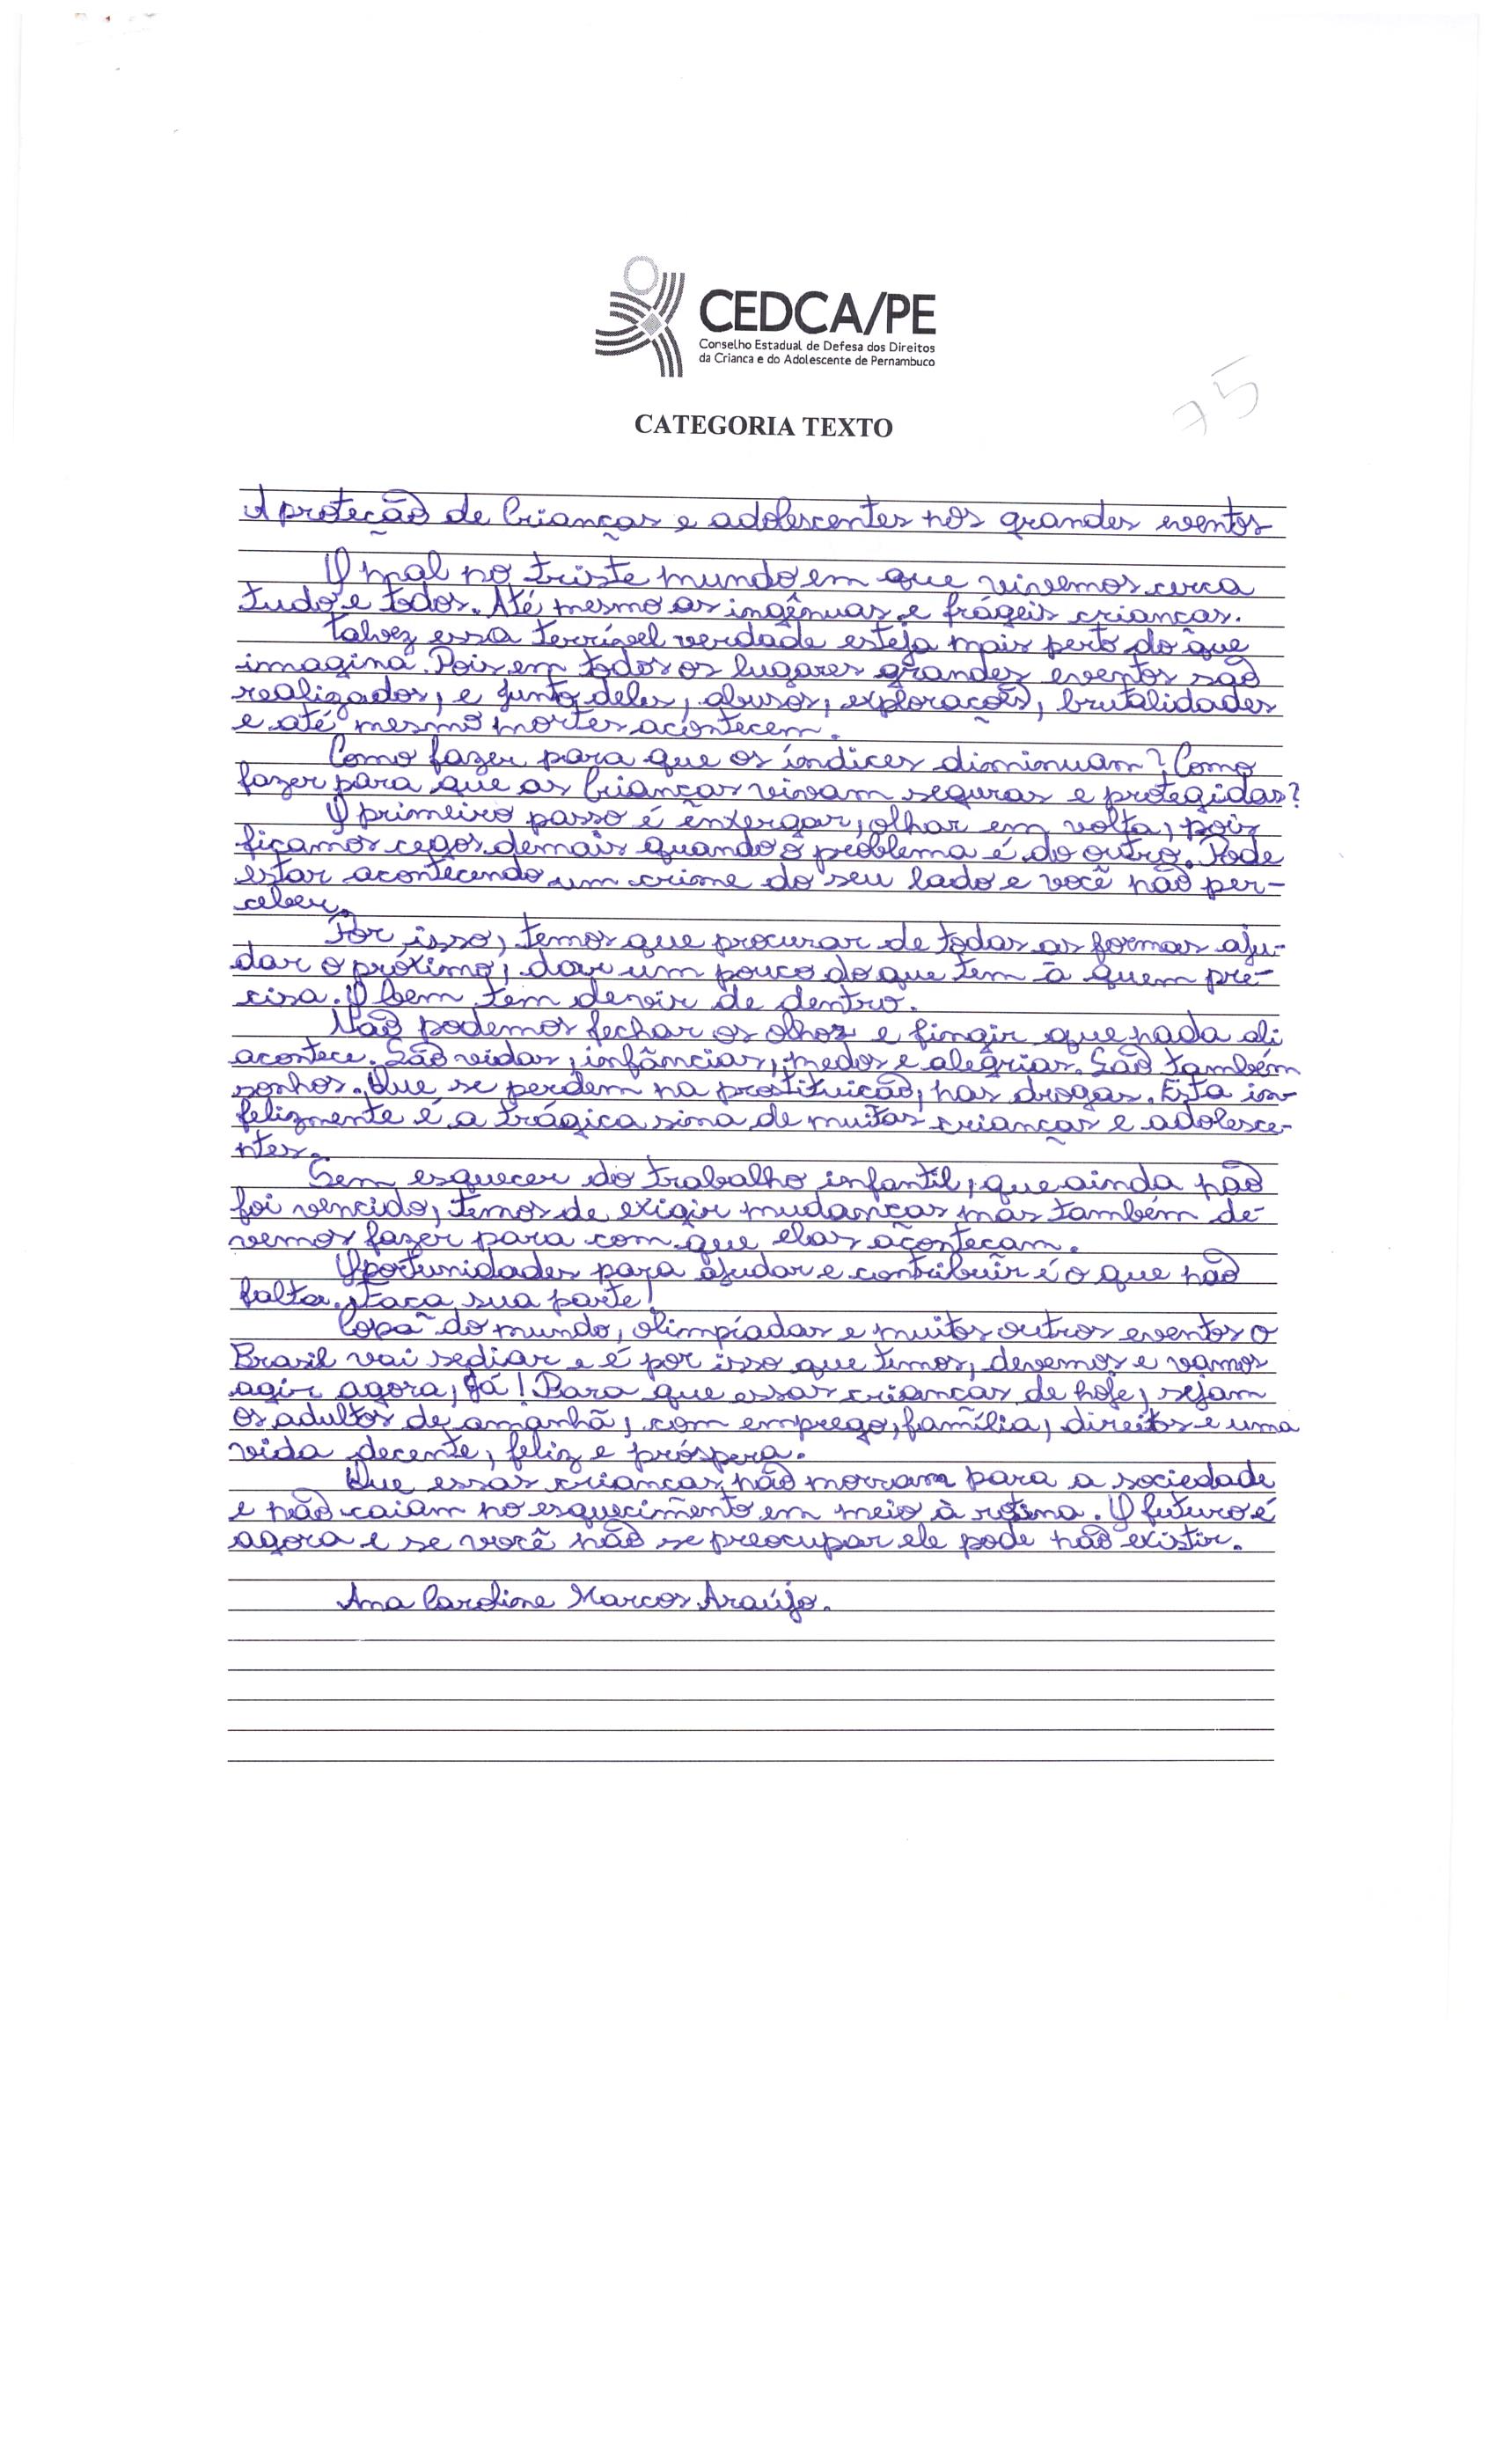 CEDCA/PE
Conselho Estadual de Defesa dos Direitos
da Crianca e do Adolescente de Pernambuco
75
CATEGORIA TEXTO
A proteção de Crianças e adolescentes nos grandes eventos
O mal no triste mundo em que vivemos cerca
tudo e todos. Até mesmo as ingênuas e frágeis crianças.
Talvez essa terrível verdade esteja mais perto do que
imagina. Pois em todos os lugares grandes eventos são
realizados, e junto deles, abusos, explorações, brutalidades
e até mesmo mortes acontecem.
Como fazer para que os índices diminuam? Como
fazer para que as Crianças vivam seguras e protegidas?
O primeiro passo é enxergar, olhar em volta, pois
ficamos cegos demais quando o problema é do outro. Pode
estar acontecendo um crime do seu lado e você não per-
ceber.
Por isso, temos que procurar de todas as formas aju-
dar o próximo, dar um pouco do que tem à quem pre-
cisa. O bem tem de vir de dentro.
Não podemos fechar os olhos e fingir que nada ali
acontece. São vidas, infâncias, medos e alegrias. São também
sonhos. Que se perdem na prostituição, nas drogas. Esta in-
felizmente é a trágica sina de muitas crianças e adolesce-
ntes.
Sem esquecer do trabalho infantil, que ainda não
foi vencido, temos de exigir mudanças mas também de-
vemos fazer para com que elas aconteçam.
Oportunidades para ajudar e contribuir é o que não
falta. Faça sua parte!
Copa do mundo, olimpíadas e muitos outros eventos o
Brasil vai sediar e é por isso que temos, devemos e vamos
agir agora, já! Para que essas crianças de hoje, sejam
os adultos de amanhã, com emprego, família, direitos e uma
vida decente, feliz e próspera.
Que essas crianças não morram para a sociedade
e não caiam no esquecimento em meio à rotina. O futuro é
agora e se você não se preocupar ele pode não existir.
Ana Caroline Marcos Araújo.